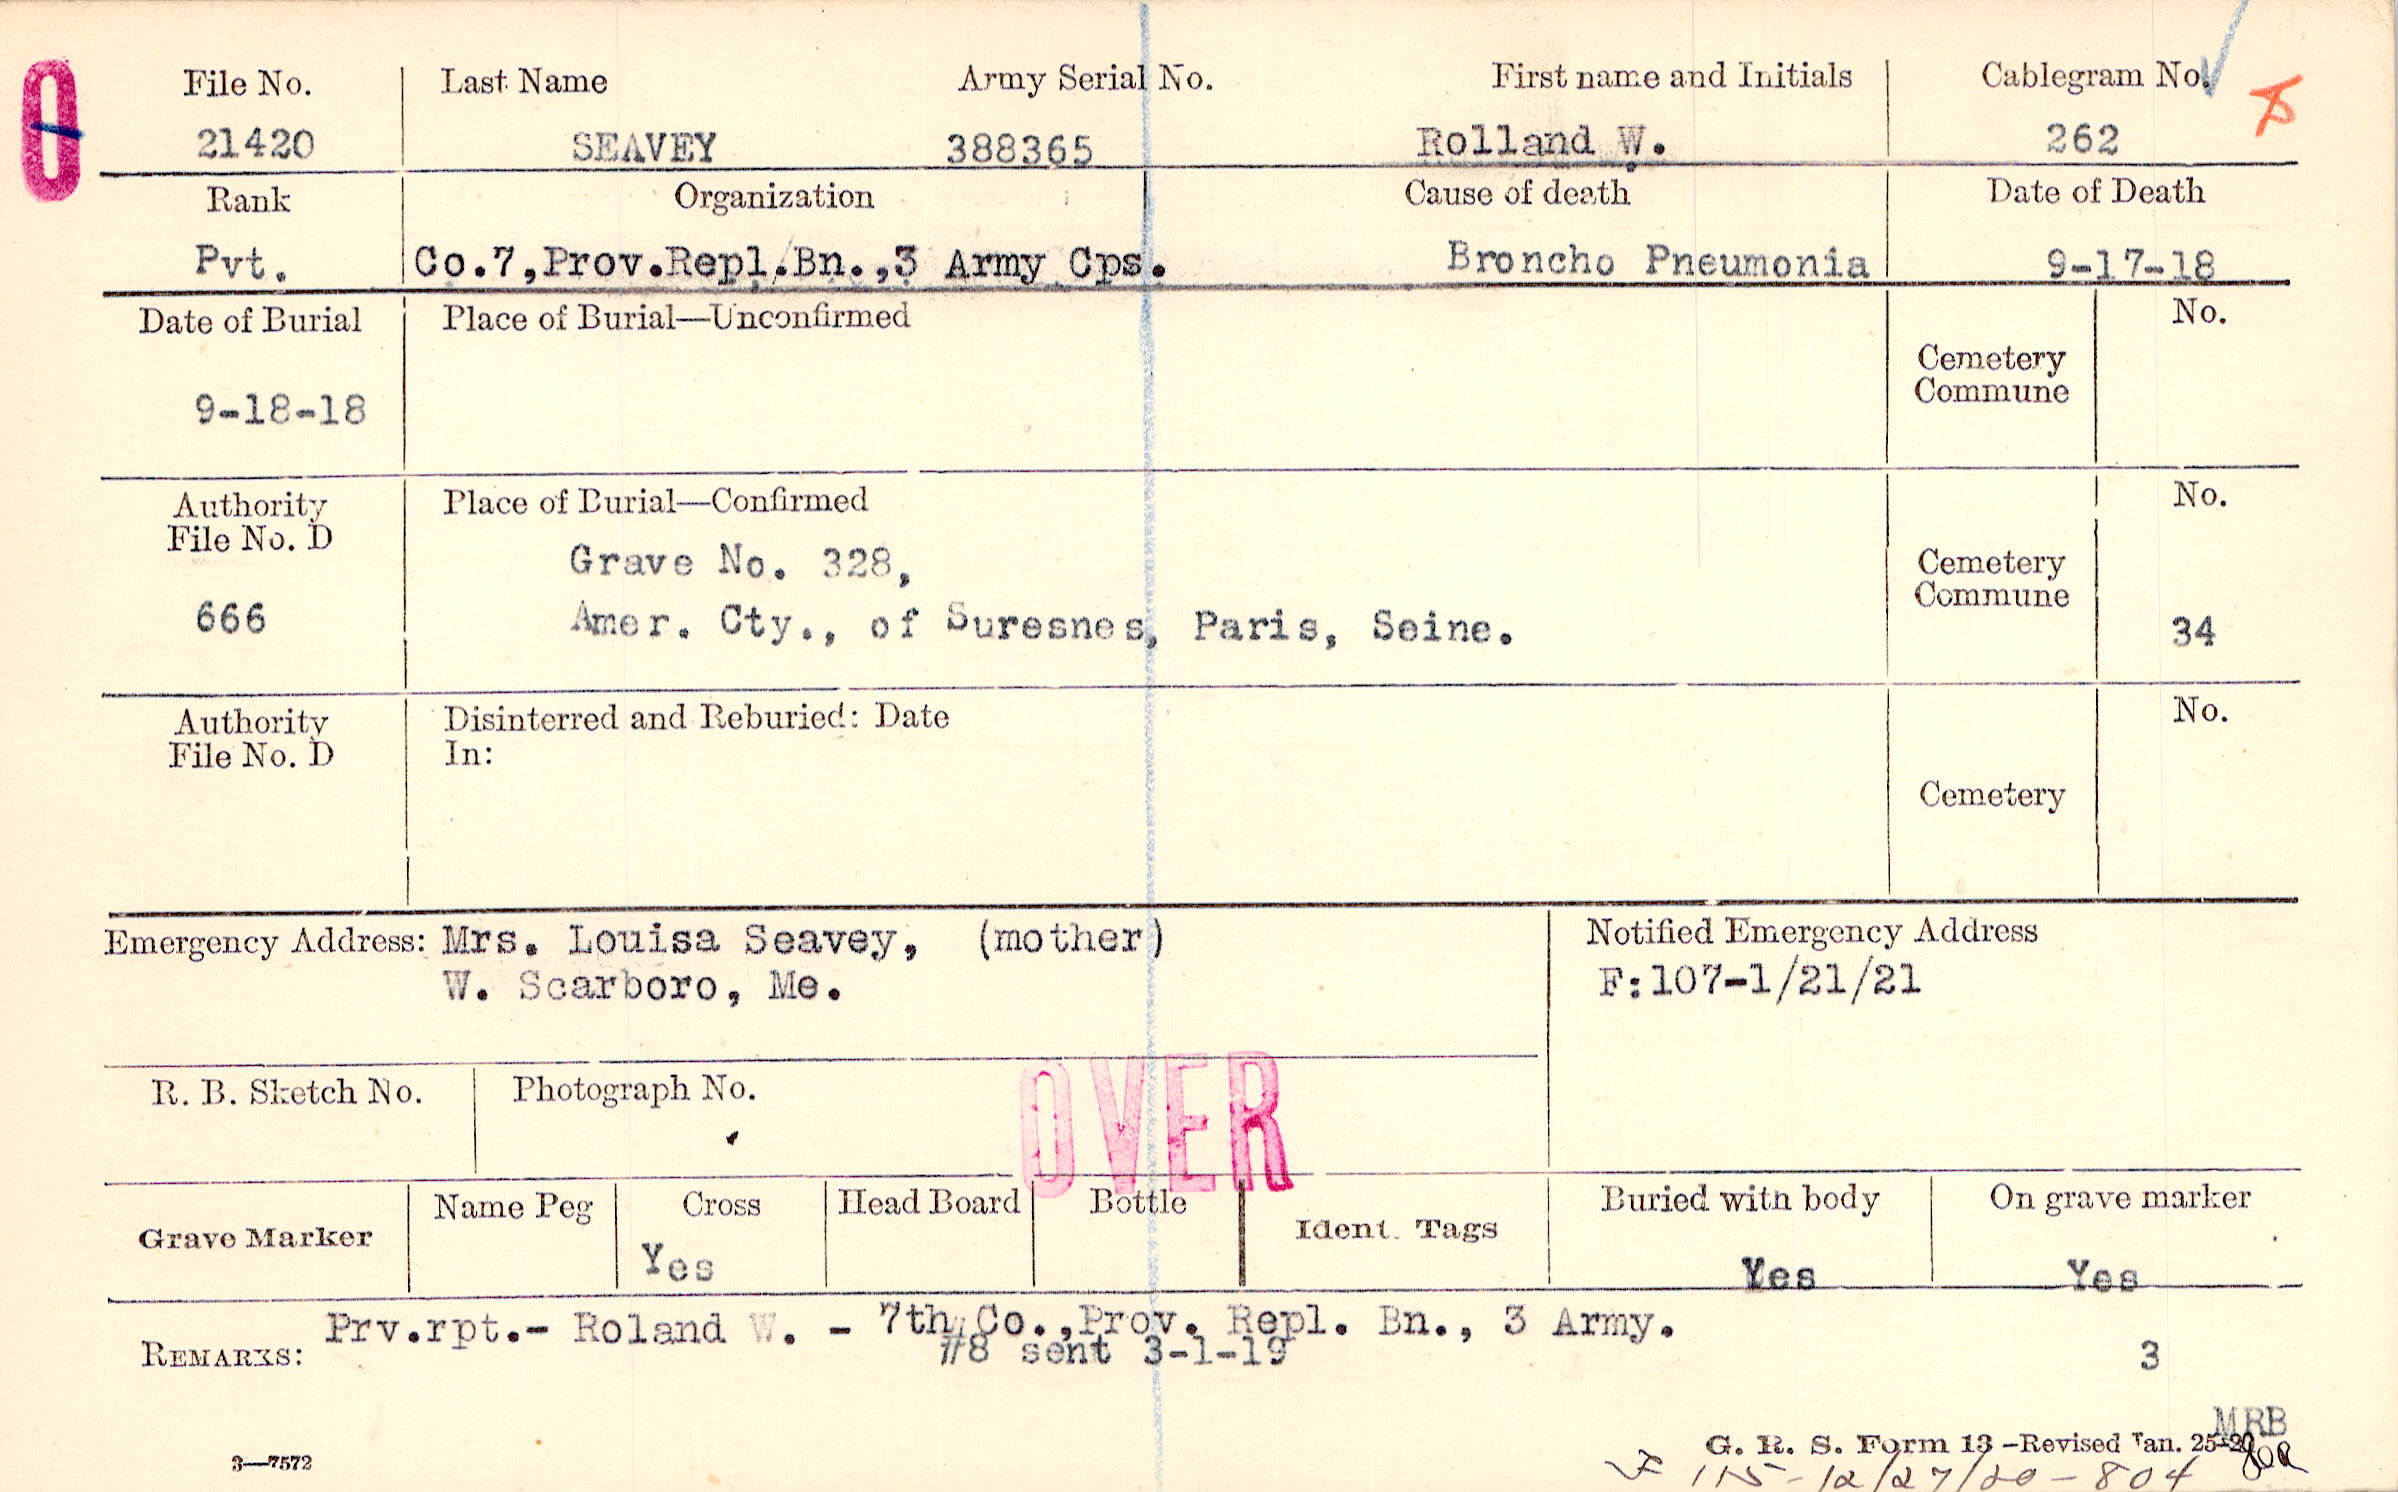 O
File No. Last Name Army Serial No. First name and Initials Cablegram No.
21420 SEAVEY 388365 Rolland W. 262
Rank Organization Cause of death Date of Death
Pvt. Co.7,Prov.Repl.Bn.,3 Army Cps. Broncho Pneumonia 9-17-18
Date of Burial Place of Burial—Unconfirmed No.
Cemetery
Commune
9-18-18
Authority Place of Burial—Confirmed No.
File No. D
Grave No. 328, Cemetery
Commune
666 Amer. Cty., of Suresnes, Paris, Seine. 34
Authority Disinterred and Reburied: Date No.
File No. D In:
Cemetery
Emergency Address: Mrs. Louisa Seavey, (mother) Notified Emergency Address
W. Scarboro, Me. F:107-1/21/21
R. B. Sketch No. Photograph No.
OVER
Grave Marker Name Peg Cross Head Board Bottle Ident. Tags Buried with body On grave marker
Yes Yes Yes
Prv.rpt.- Roland W. - 7th Co.,Prov. Repl. Bn., 3 Army.
REMARKS: #8 sent 3-1-19 3
MRB
3—7572 G. R. S. Form 13 -Revised Jan. 25-20
115-12/27/20-804